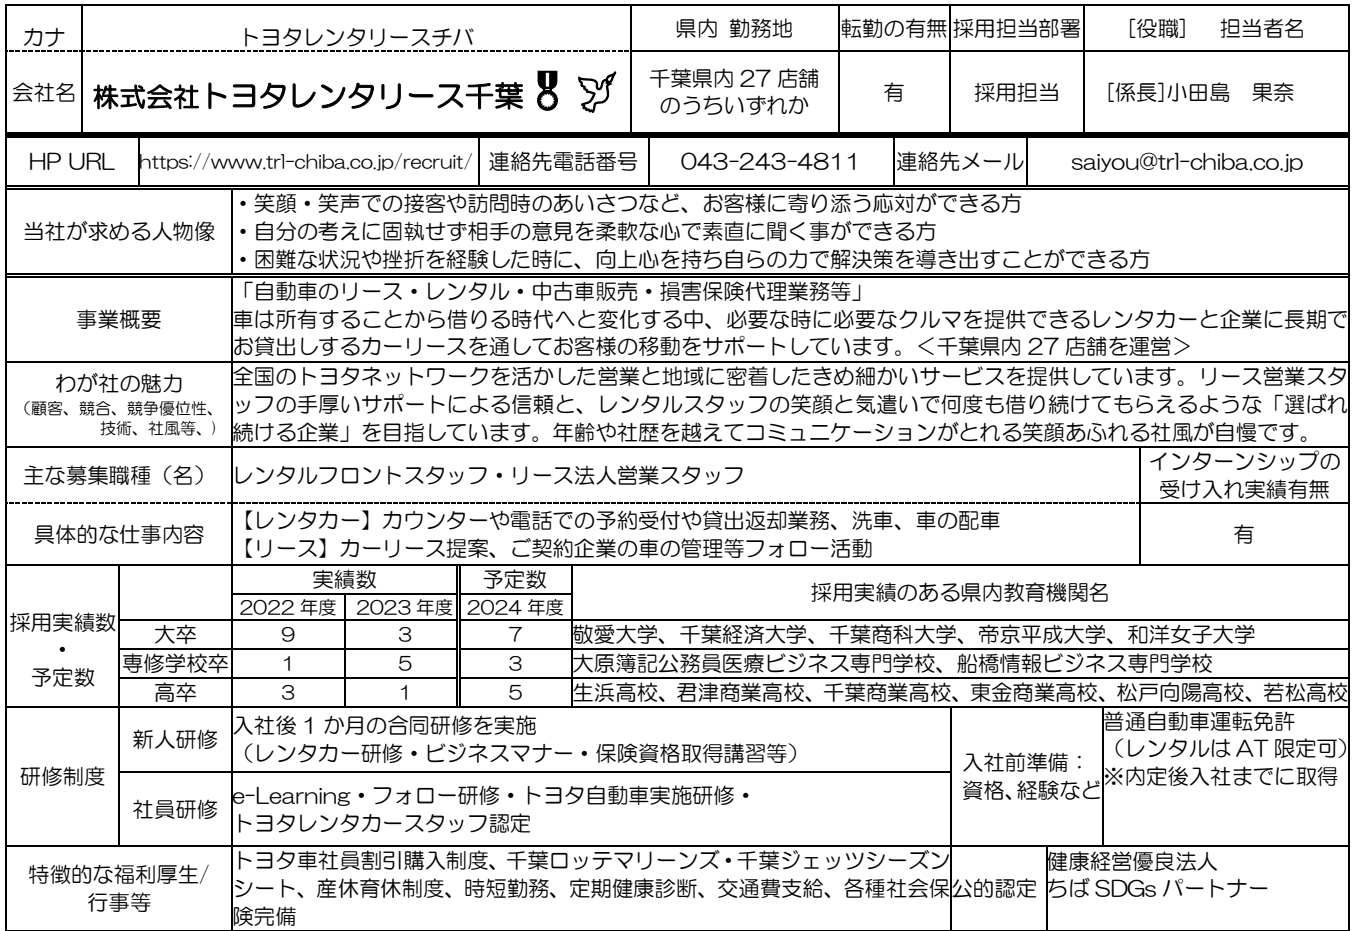 カナ トヨタレンタリースチバ 県内 勤務地 転勤の有無 採用担当部署 [役職] 担当者名
会社名 株式会社トヨタレンタリース千葉 千葉県内 27 店舗のうちいずれか 有 採用担当 [係長]小田島 果奈
HP URL https://www.trl-chiba.co.jp/recruit/ 連絡先電話番号 043-243-4811 連絡先メール saiyou@trl-chiba.co.jp
当社が求める人物像
・笑顔・笑声での接客や訪問時のあいさつなど、お客様に寄り添う応対ができる方
・自分の考えに固執せず相手の意見を柔軟な心で素直に聞く事ができる方
・困難な状況や挫折を経験した時に、向上心を持ち自らの力で解決策を導き出すことができる方
事業概要
「自動車のリース・レンタル・中古車販売・損害保険代理業務等」
車は所有することから借りる時代へと変化する中、必要な時に必要なクルマを提供できるレンタカーと企業に長期で
お貸出しするカーリースを通してお客様の移動をサポートしています。＜千葉県内 27 店舗を運営＞
わが社の魅力
（顧客、競合、競争優位性、
技術、社風等、）
全国のトヨタネットワークを活かした営業と地域に密着したきめ細かいサービスを提供しています。リース営業スタ
ッフの手厚いサポートによる信頼と、レンタルスタッフの笑顔と気遣いで何度も借り続けてもらえるような「選ばれ
続ける企業」を目指しています。年齢や社歴を越えてコミュニケーションがとれる笑顔あふれる社風が自慢です。
主な募集職種（名） レンタルフロントスタッフ・リース法人営業スタッフ
インターンシップの
受け入れ実績有無
具体的な仕事内容
【レンタカー】カウンターや電話での予約受付や貸出返却業務、洗車、車の配車
【リース】カーリース提案、ご契約企業の車の管理等フォロー活動
有
採用実績数
・
予定数
実績数 予定数 採用実績のある県内教育機関名
2022 年度 2023 年度 2024 年度
大卒 9 3 7 敬愛大学、千葉経済大学、千葉商科大学、帝京平成大学、和洋女子大学
専修学校卒 1 5 3 大原簿記公務員医療ビジネス専門学校、船橋情報ビジネス専門学校
高卒 3 1 5 生浜高校、君津商業高校、千葉商業高校、東金商業高校、松戸向陽高校、若松高校
研修制度
新人研修
入社後 1 か月の合同研修を実施
（レンタカー研修・ビジネスマナー・保険資格取得講習等）
社員研修
e-Learning・フォロー研修・トヨタ自動車実施研修・
トヨタレンタカースタッフ認定
入社前準備：
資格、経験など
普通自動車運転免許
（レンタルは AT 限定可）
※内定後入社までに取得
特徴的な福利厚生/
行事等
トヨタ車社員割引購入制度、千葉ロッテマリーンズ・千葉ジェッツシーズン
シート、産休育休制度、時短勤務、定期健康診断、交通費支給、各種社会保
険完備
公的認定
健康経営優良法人
ちば SDGs パートナー